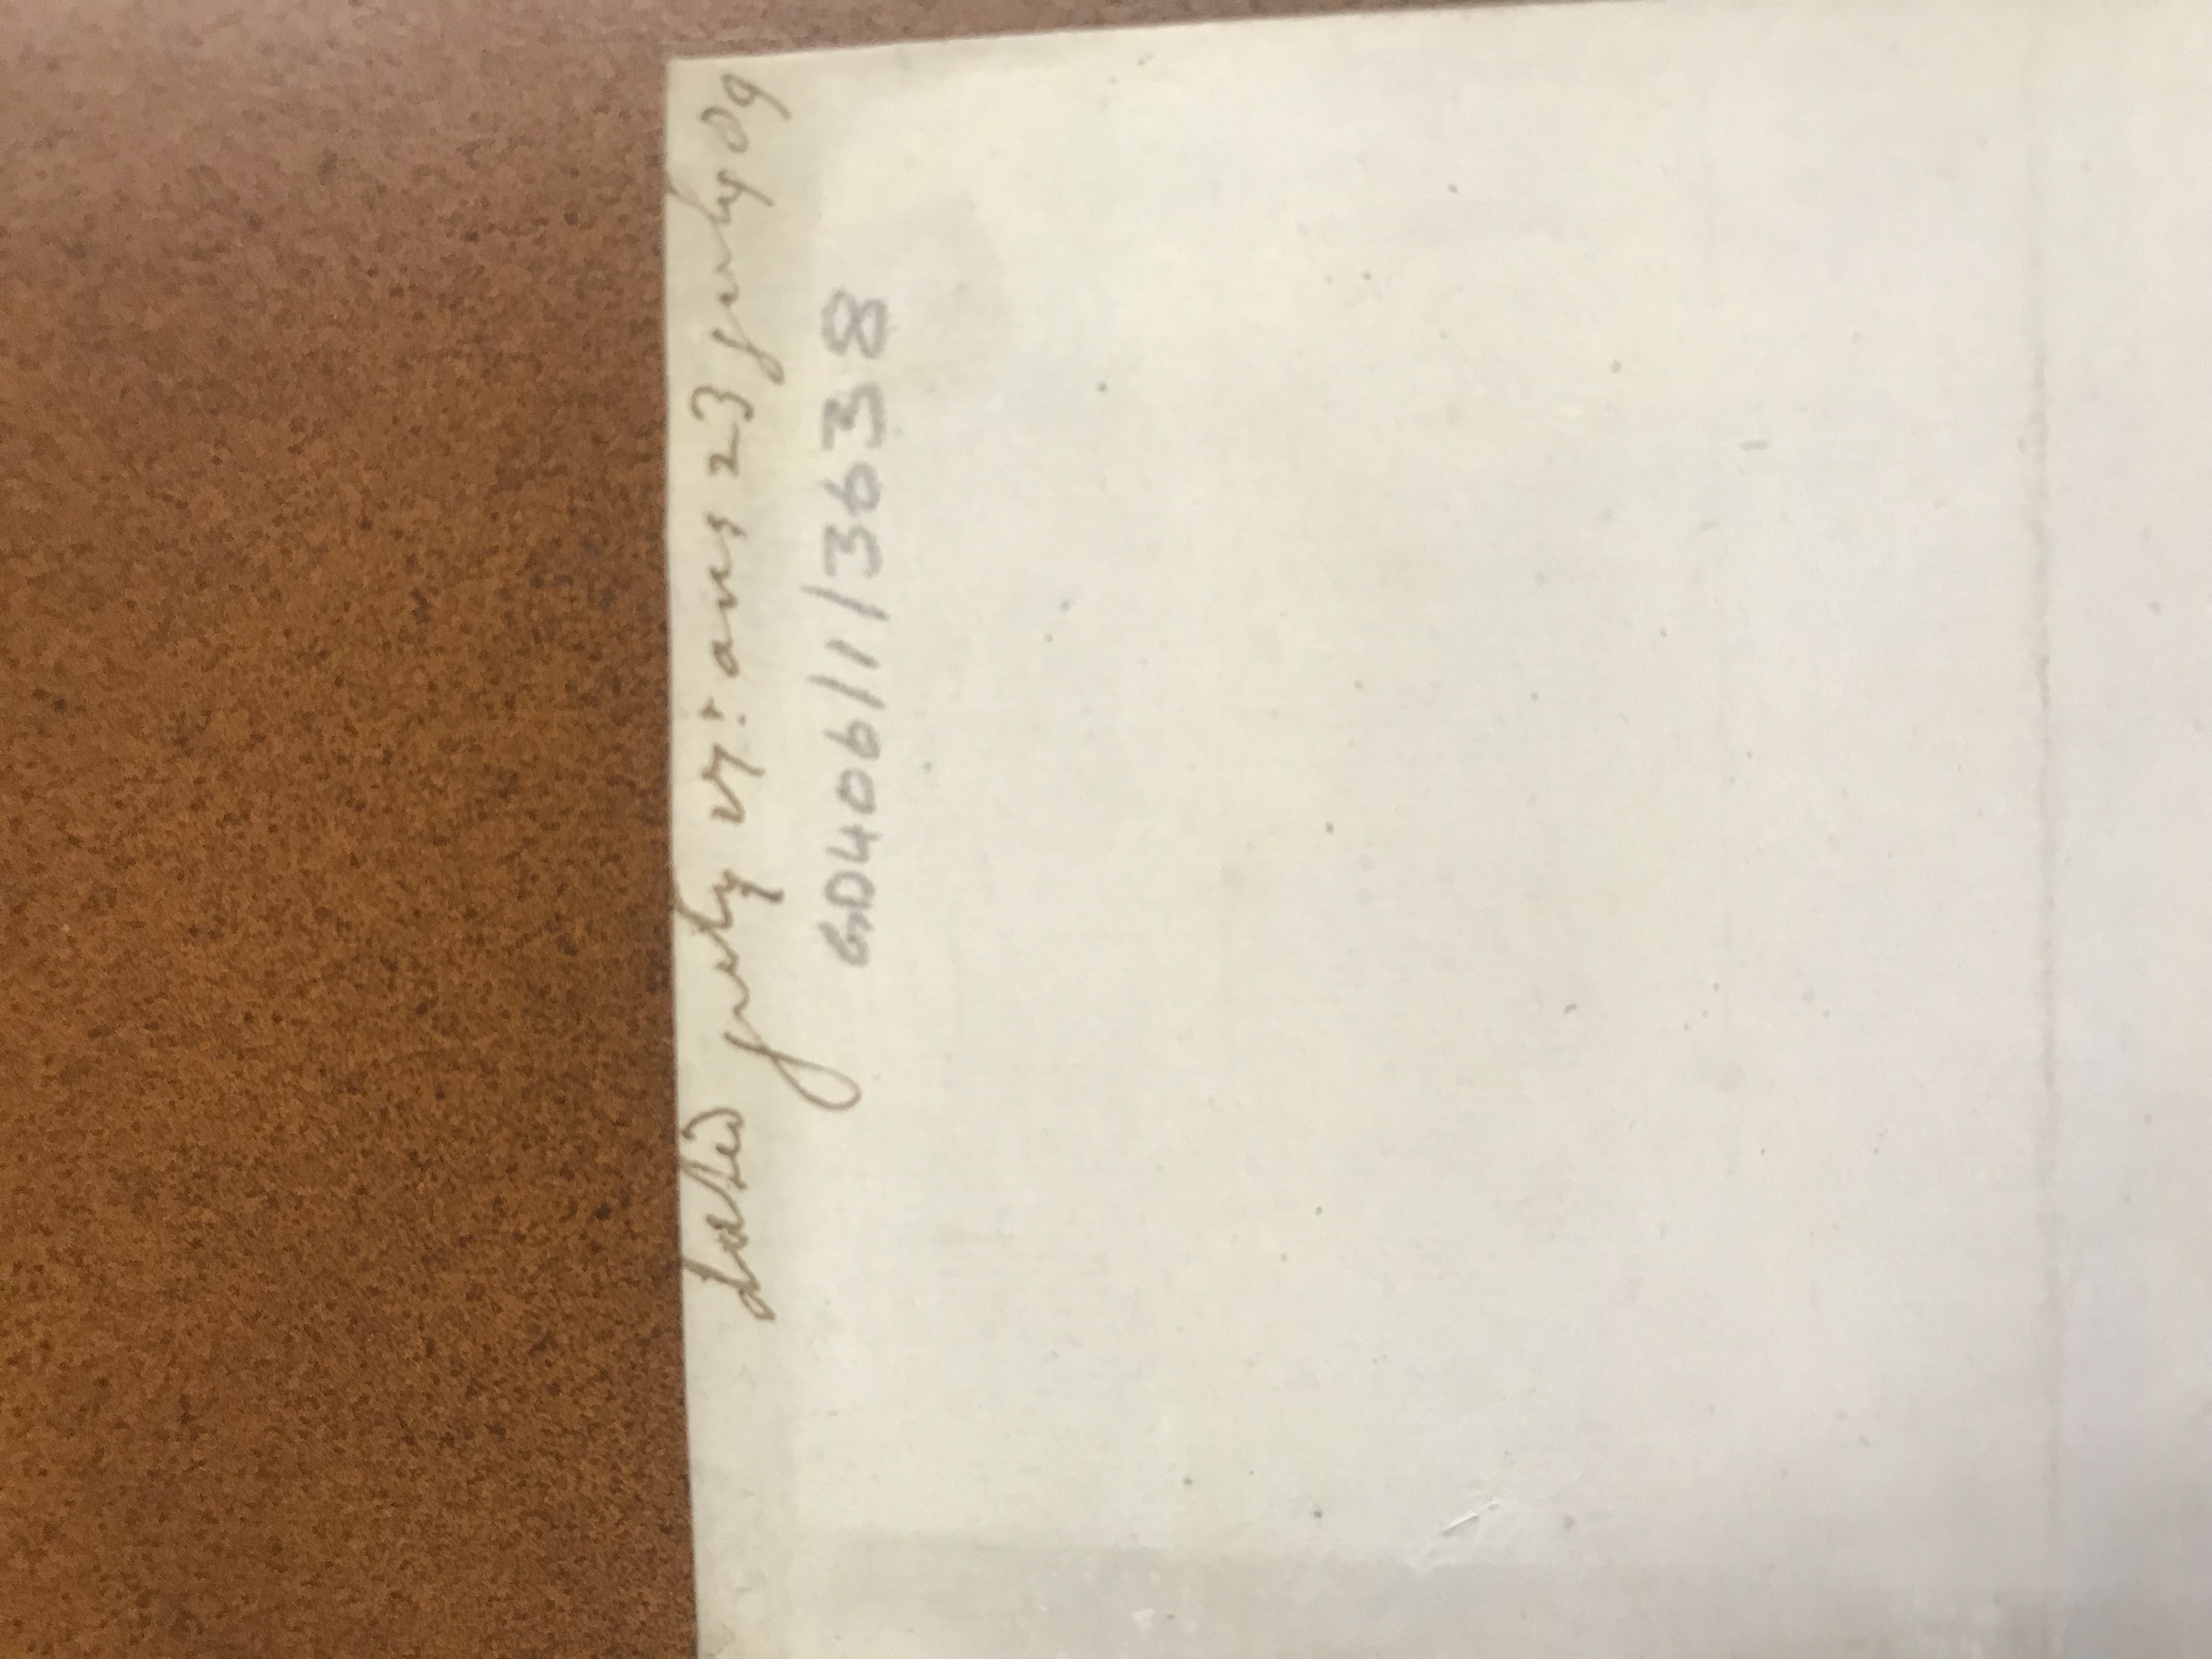 dated July 27: ans 23 July 89
GD406/1/3638